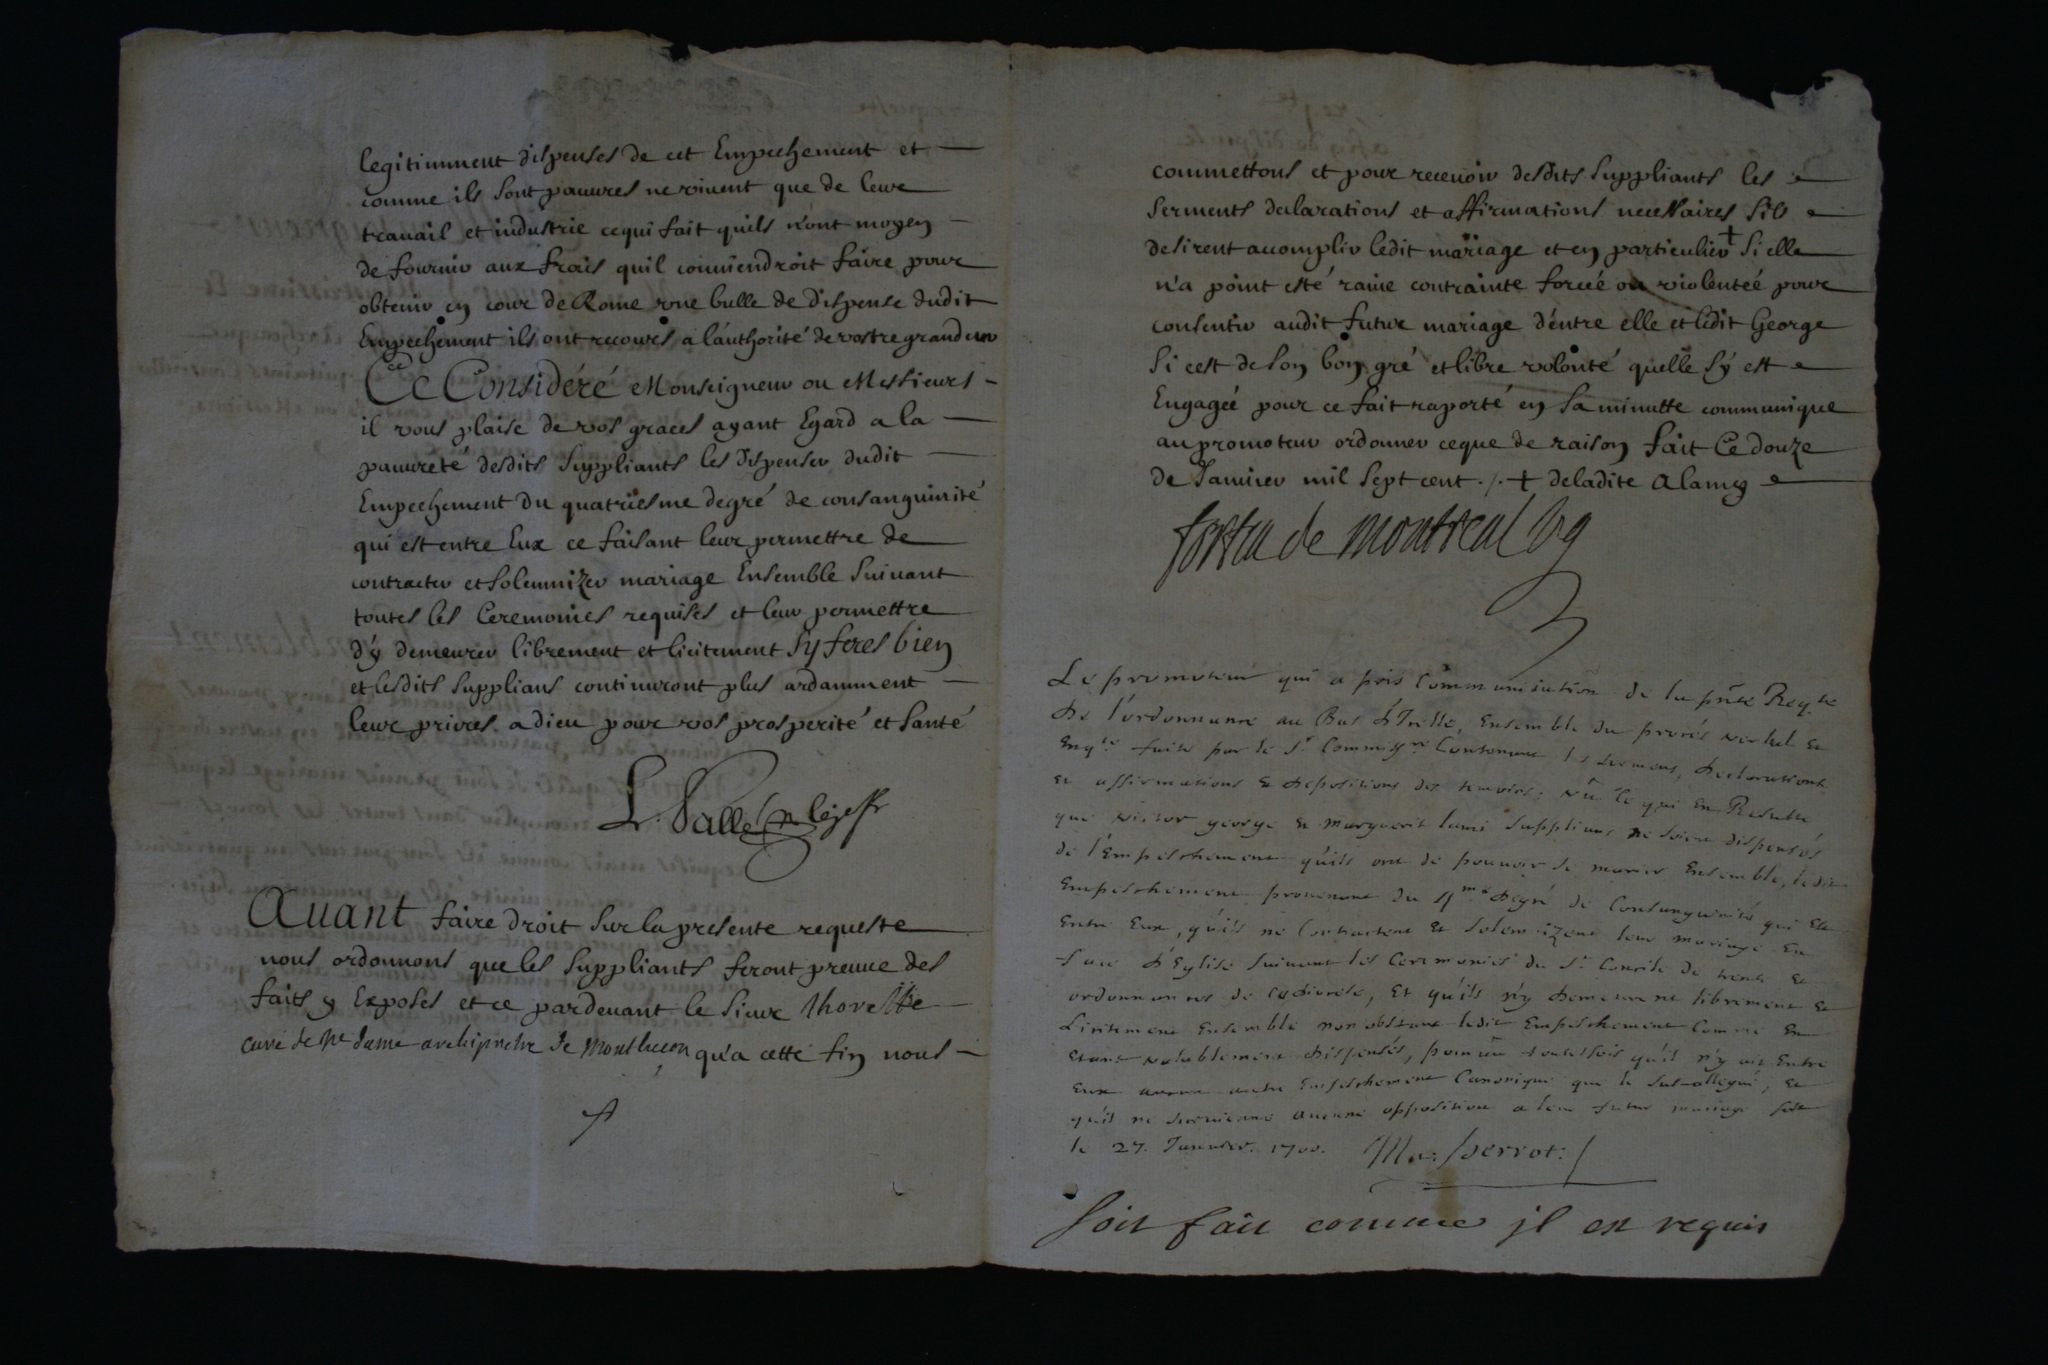 legitimment dispenses de cet Empechement et
comme ils sont pauvres ne vivent que de leur
travail et industrie cequi fait quils n'ont moyen
de fournir aux frais quil conviendroit faire pour
obtenir en cour de Rome vne bulle de dispense dudit
Empechement ils ont recours a l'authorité de vostre grandeur
Ce Consideré Monseigneur ou Messieurs
il vous plaise de vos graces ayant Egard a la
pauvreté desdits suppliants les dispenser dudit
Empechement du quatriesme degré de consanguinité
qui est entre Eux ce faisant leur permettre de
contracter et solemnizer mariage Ensemble suivant
toutes les Ceremonies requises et leur permettre
d'y demeurer librement et licitement sy feres bien
et lesdits supplians continuront plus ardamment
leur prires a dieu pour vos prosperité et santé
Avant faire droit sur la presente requeste
nous ordonnons que les suppliants feront preuve des
faits y Exposes et ce pardevant le sieur
curé de Nre dame archiprebre de Montluçon qu'a cette fin nous
commettons et pour recevoir desdits suppliants les
serments declarations et affirmations necessaires sils
desirent accomplir ledit mariage et en particulier + si elle
n'a point esté ravie contrainte forcée ou violentée pour
consentir audit futur mariage d'entre elle et ledit George
si cest de son bon gré et libre volonté quelle s'y est
Engagée pour ce fait raporté en sa minutte communique
au promoteur ordonner ceque de raison fait Ce douze
de Janvier mil sept cent ./. + deladite alamy
fortia de montreal vg
Le promoteur qui a pris communication de la pnte Reqte
de l'ordonnance au Bas d'Icelle, Ensemble du procés verbal et
Enqte faits par le Sr Commissre Contenant les sermens, declarations
et affirmations et depositions des temoins; vû ce qui En Resulte
que victor george et marguerite lami suppliants ne soient dispensés
de l'Empeschement qu'ils ont de pouvoir se marier Ensemble, ledit
Empeschement provenant du 4me degré de Consanguinité qui Est
Entre Eux, qu'ils ne Contractent et solemnizent leur mariage En
face d'Eglise suivant les Ceremonies du St Concile de trente et
ordonnances de ce diocése, Et qu'ils n'y demeurent librement et
Licitement Ensemble nonobstant ledit Empeschement Comme En
Etant valablement dispensés, pourvû toutesfois qu'il n'y ait Entre
Eux aucun autre Empeschement Canonique que le susallegué, et
qu'il ne survienne aucune opposition a leur futur mariage fait
le 27. Janvier. 1700. Perrot:
soit fait comme jl est requis